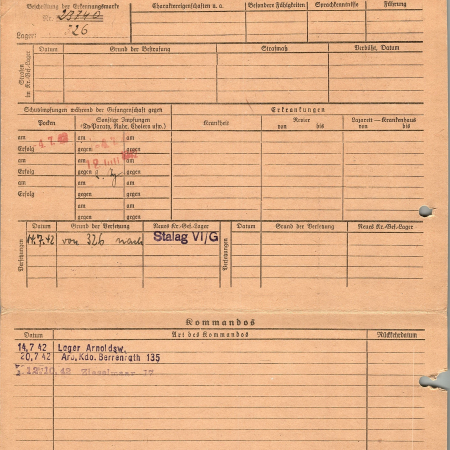 Beschriftung der Erkennungsmarke
Nr.
Lager: 326
Charaktereigenschaften u. a.
Besondere Fähigkeiten
Sprachkenntnisse
Führung
Strafen im Kr.-Gef.-Lager
Datum
Grund der Bestrafung
Strafmaß
Verbüßt, Datum
Schutzimpfungen während der Gefangenschaft gegen
Erkrankungen
Pocken
Sonstige Impfungen
(Ty-Paraty, Ruhr, Cholera usw.)
Krankheit
Revier
von bis
Lazarett — Krankenhaus
von bis
am
am
Erfolg
gegen
am
am
Erfolg
gegen
am
am
Erfolg
gegen
am
am
Erfolg
gegen
am
gegen
am
gegen
Versetzungen
Datum
Grund der Versetzung
Neues Kr.-Gef.-Lager
Versetzungen
Datum
Grund der Versetzung
Neues Kr.-Gef.-Lager
14.7.42 von 326 nach Stalag VI/G
Kommandos
Datum
Art des Kommandos
Rückkehrdatum
14.7.42 Lager Arnoldsw.
20.7.42 Arb.Kdo. Berrenrath 135